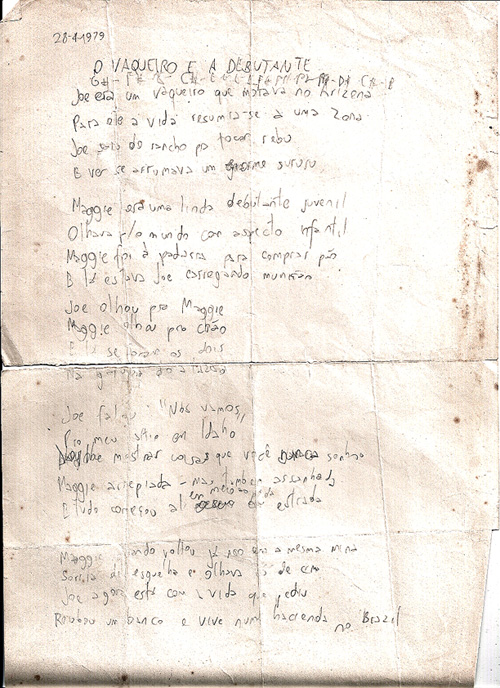 28-4-1979
O VAQUEIRO E A DEBUTANTE
Joe era um vaqueiro que morava no Arizona
Para ele a vida resumia-se a uma zona
Joe saia do rancho pra tocar rebu
E ver se arrumava um enorme sururu
Maggie era uma linda debutante juvenil
Olhava p/o mundo com aspecto infantil
Maggie foi à padaria para comprar pão
E lá estava Joe carregando munição
Joe olhou pra Maggie
Maggie olhou pro chão
E lá se foram os dois
Joe falou: "Nós vamos,
Pro meu sítio em Idaho
mostrar coisas que você nunca sonhou
Maggie arrepiada - mas também assanhada
E tudo começou ali em meio a estrada
Maggie quando voltou já não era a mesma mina
Sorria de esguelha e olhava de cima
Joe agora está com a vida que pediu
Roubou um banco e vive numa hacienda no Brazil